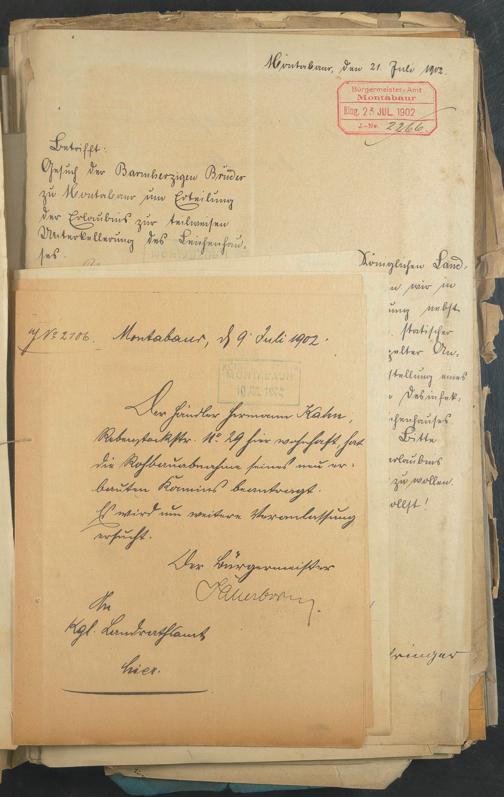 Montabaur, den 21. Juli 1902.
Bürgermeister-Amt
Montabaur
Eing. 23 JUL. 1902
J.-No. 2266.
Betrifft:
Gesuch der Barmherzigen Brüder
zu Montabaur um Erteilung
der Erlaubnis zur teilweisen
Unterkellerung des Leichenhau-
ses.
Königlichen Land-
wir in
ung nebst
statischer
An-
stellung eines
Desinfek-
ichenhauses
Bitte
erlaubnis
zu wollen.
ollst!
J. No 2106. Montabaur, d 9. Juli 1902.
MONTABAUR
10 JUL 1902
Der Händler Hermann Kahn,
Rebenstockstr. No. 29 hier wohnhaft, hat
die Rohbauabnahme seines neu er-
bauten Kamins beantragt.
Es wird um weitere Veranlassung
ersucht.
Der Bürgermeister
An
Kgl. Landrathsamt
hier.